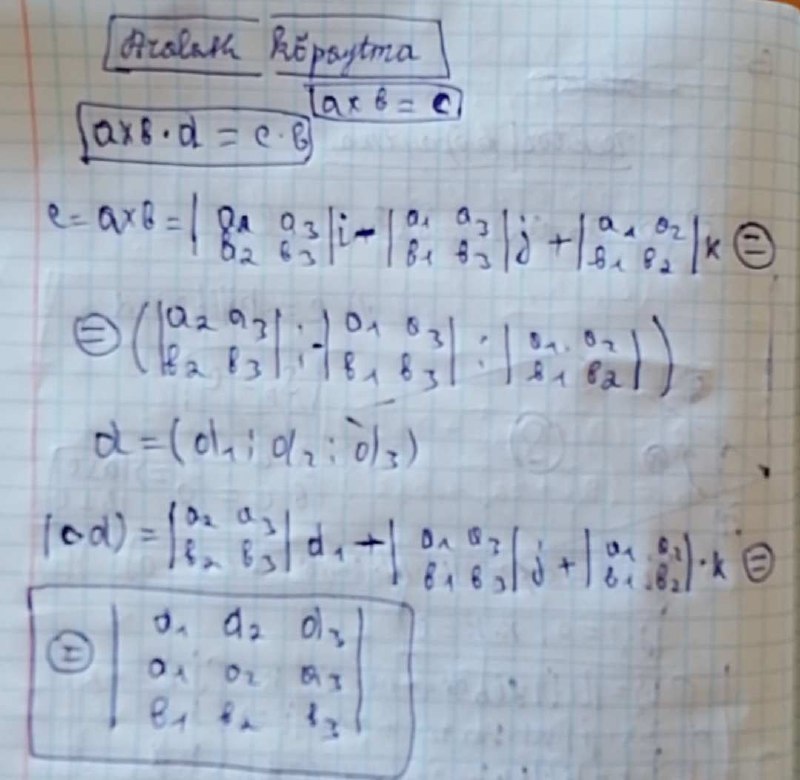 Aralash ko'paytma
a × b = c
a×b · d = c · b
c = a×b = | a1 a3 ; b2 b3 | i - | a1 a3 ; b1 b3 | j + | a1 a2 ; b1 b2 | k =
= ( | a2 a3 ; b2 b3 | ; - | a1 a3 ; b1 b3 | ; | a1 a2 ; b1 b2 | )
d = (d1 ; d2 ; d3)
(c d) = | a2 a3 ; b2 b3 | d1 + | a1 a3 ; b1 b3 | j + | a1 a2 ; b1 b2 | · k =
= | d1 d2 d3
a1 a2 a3
b1 b2 b3 |